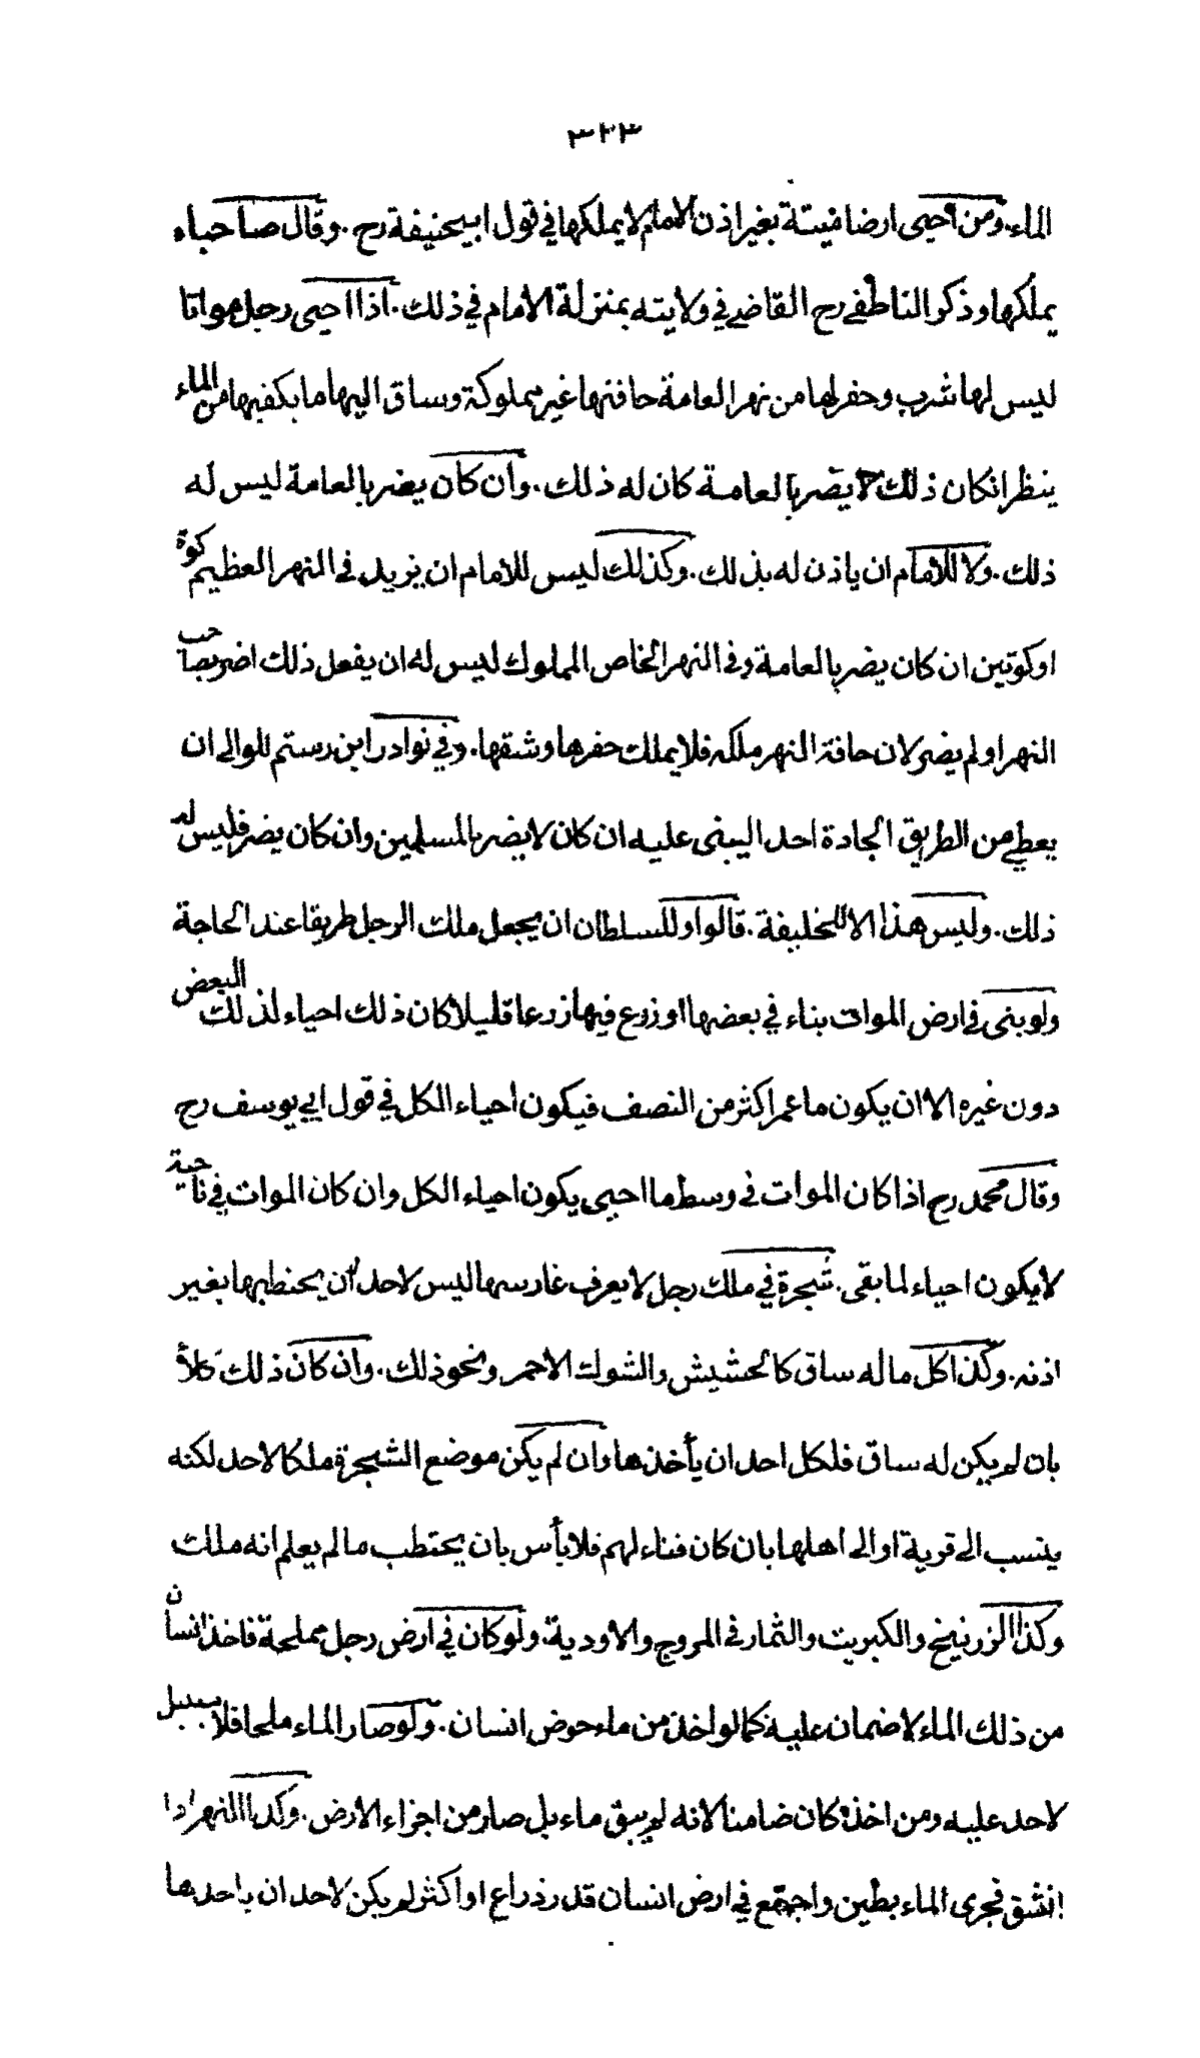 ٣٢٣
الماء. ومن احيى ارضا ميتة بغير اذن الامام لا يملكها في قول ابيحنيفة رح. وقال صاحباه
يملكها وذكر الناطفي رح القاضي في ولايته بمنزلة الامام في ذلك. اذا احيى رجل مواتا
ليس لها شرب وحفر لها من نهر العامة حافتها غير مملوكة وساق اليها ما يكفيها من الماء
ينظر انكان ذلك لا يضر بالعامة كان له ذلك. وان كان يضر بالعامة ليس له
ذلك. ولا للامام ان ياذن له بذلك. وكذلك ليس للامام ان يزيد في النهر العظيم كوة
او كوتين ان كان يضر بالعامة وفي النهر الخاص المملوك ليس له ان يفعل ذلك اضر بصاحب
النهر اولم يضر لان حافة النهر ملكه فلا يملك حفرها وشقها. وفي نوادر ابن رستم للوالي ان
يعطي من الطريق الجادة احدا ليبنى عليه ان كان لا يضر بالمسلمين وان كان يضر فليس له
ذلك. وليس هذا الا للخليفة. قالوا وللسلطان ان يجعل ملك الرجل طريقا عند الحاجة
ولو بنى في ارض الموات بناء في بعضها او زرع فيها زرعا قليلا كان ذلك احياء لذلك البعض
دون غيره الا ان يكون ما عمر اكثر من النصف فيكون احياء الكل في قول ابي يوسف رح
وقال محمد رح اذا كان الموات في وسط ما احيى يكون احياء الكل وان كان الموات في ناحية
لا يكون احياء لما بقى. شجرة في ملك رجل لا يعرف غارسها ليس لاحد ان يحتطبها بغير
اذنه. وكذا كل ما له ساق كالحشيش والشوك الاحمر ونحو ذلك. وان كان ذلك كلأ
بان لم يكن له ساق فلكل احد ان يأخذها وان لم يكن موضع الشجرة ملكا لاحد لكنه
ينسب الى قرية او الى اهلها بان كان فناء لهم فلا بأس بان يحتطب ما لم يعلم انه ملك
وكذا الزرنيخ والكبريت والثمار في المروج والاودية. ولو كان في ارض رجل مملحة فاخذ انسان
من ذلك الماء لا ضمان عليه كما لو اخذ من ماء حوض انسان. ولو صار الماء ملحا فلا سبيل
لاحد عليه ومن اخذه كان ضامنا لانه لم يبق ماء بل صار من اجزاء الارض. وكذا النهر اذا
انشق فجرى الماء بطين واجتمع في ارض انسان قدر ذراع او اكثر لم يكن لاحد ان ياخذها